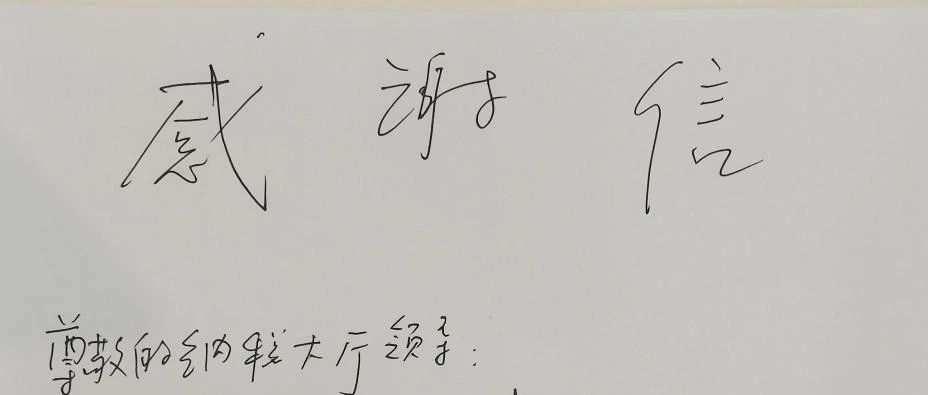 感谢信
尊敬的纳税大厅领导：